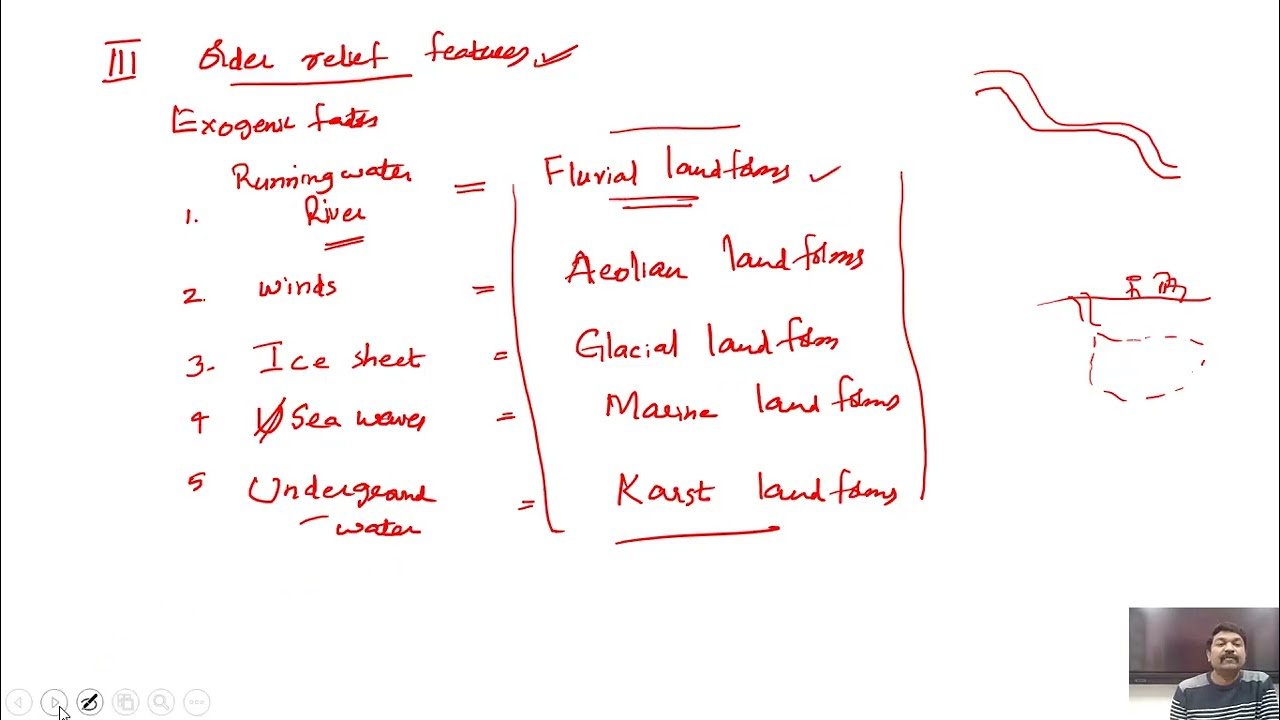 III Order relief features
Exogenic fates
Running water = Fluvial landforms
1. River
2. winds = Aeolian landforms
3. Ice sheet = Glacial landform
4 Sea waves = Marine landforms
5 Underground = Karst landforms
water